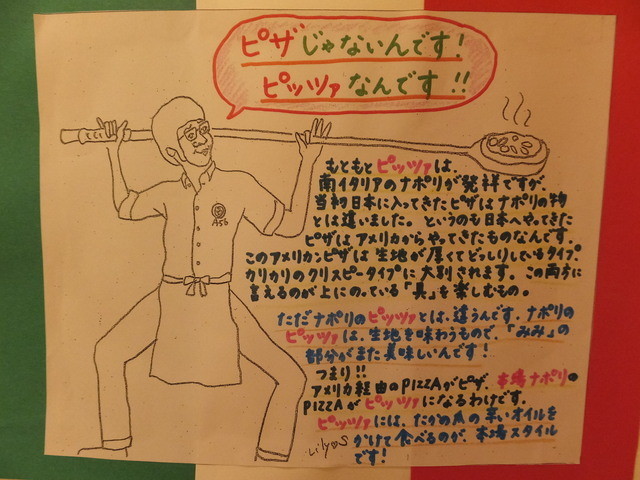 ピザじゃないんです!
ピッツァなんです!!
もともとピッツァは、
南イタリアのナポリが発祥ですが、
当初日本に入ってきたピザはナポリの物
とは違いました。というのも日本へやってきた
ピザはアメリカからやってきたものなんです。
このアメリカンピザは生地が厚くてどっしりしているタイプ、
カリカリのクリスピータイプに大別されます。この両方に
言えるのが上にのっている「具」を楽しむもの。
ただナポリのピッツァとは、違うんです。ナポリの
ピッツァは、生地を味わうもので、「みみ」の
部分がまた美味しいんです!
つまり!!
アメリカ経由のPIZZAがピザ、本場ナポリの
PIZZAがピッツァになるわけです。
ピッツァには、たかの爪の辛いオイルを
かけて食べるのが、本場スタイル
です!
A56
Lily♡S